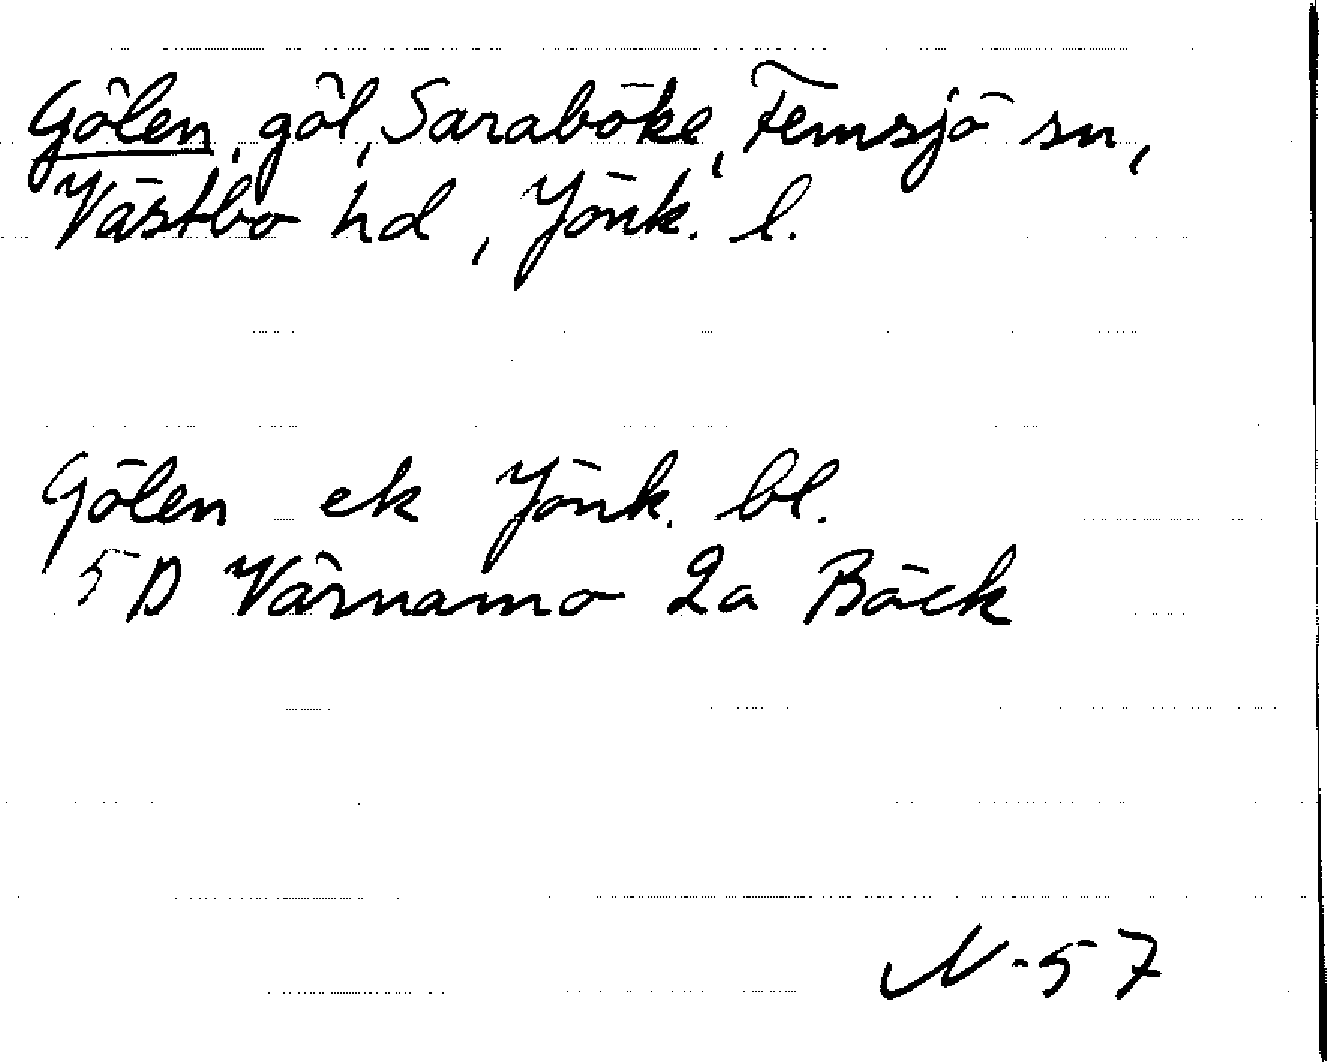 Gölen, göl, Saraböke, Femsjö sn,
Västbo hd, Jönk. l.
Gölen ek Jönk. bl.
5D Värnamo 2a Bäck
N-57